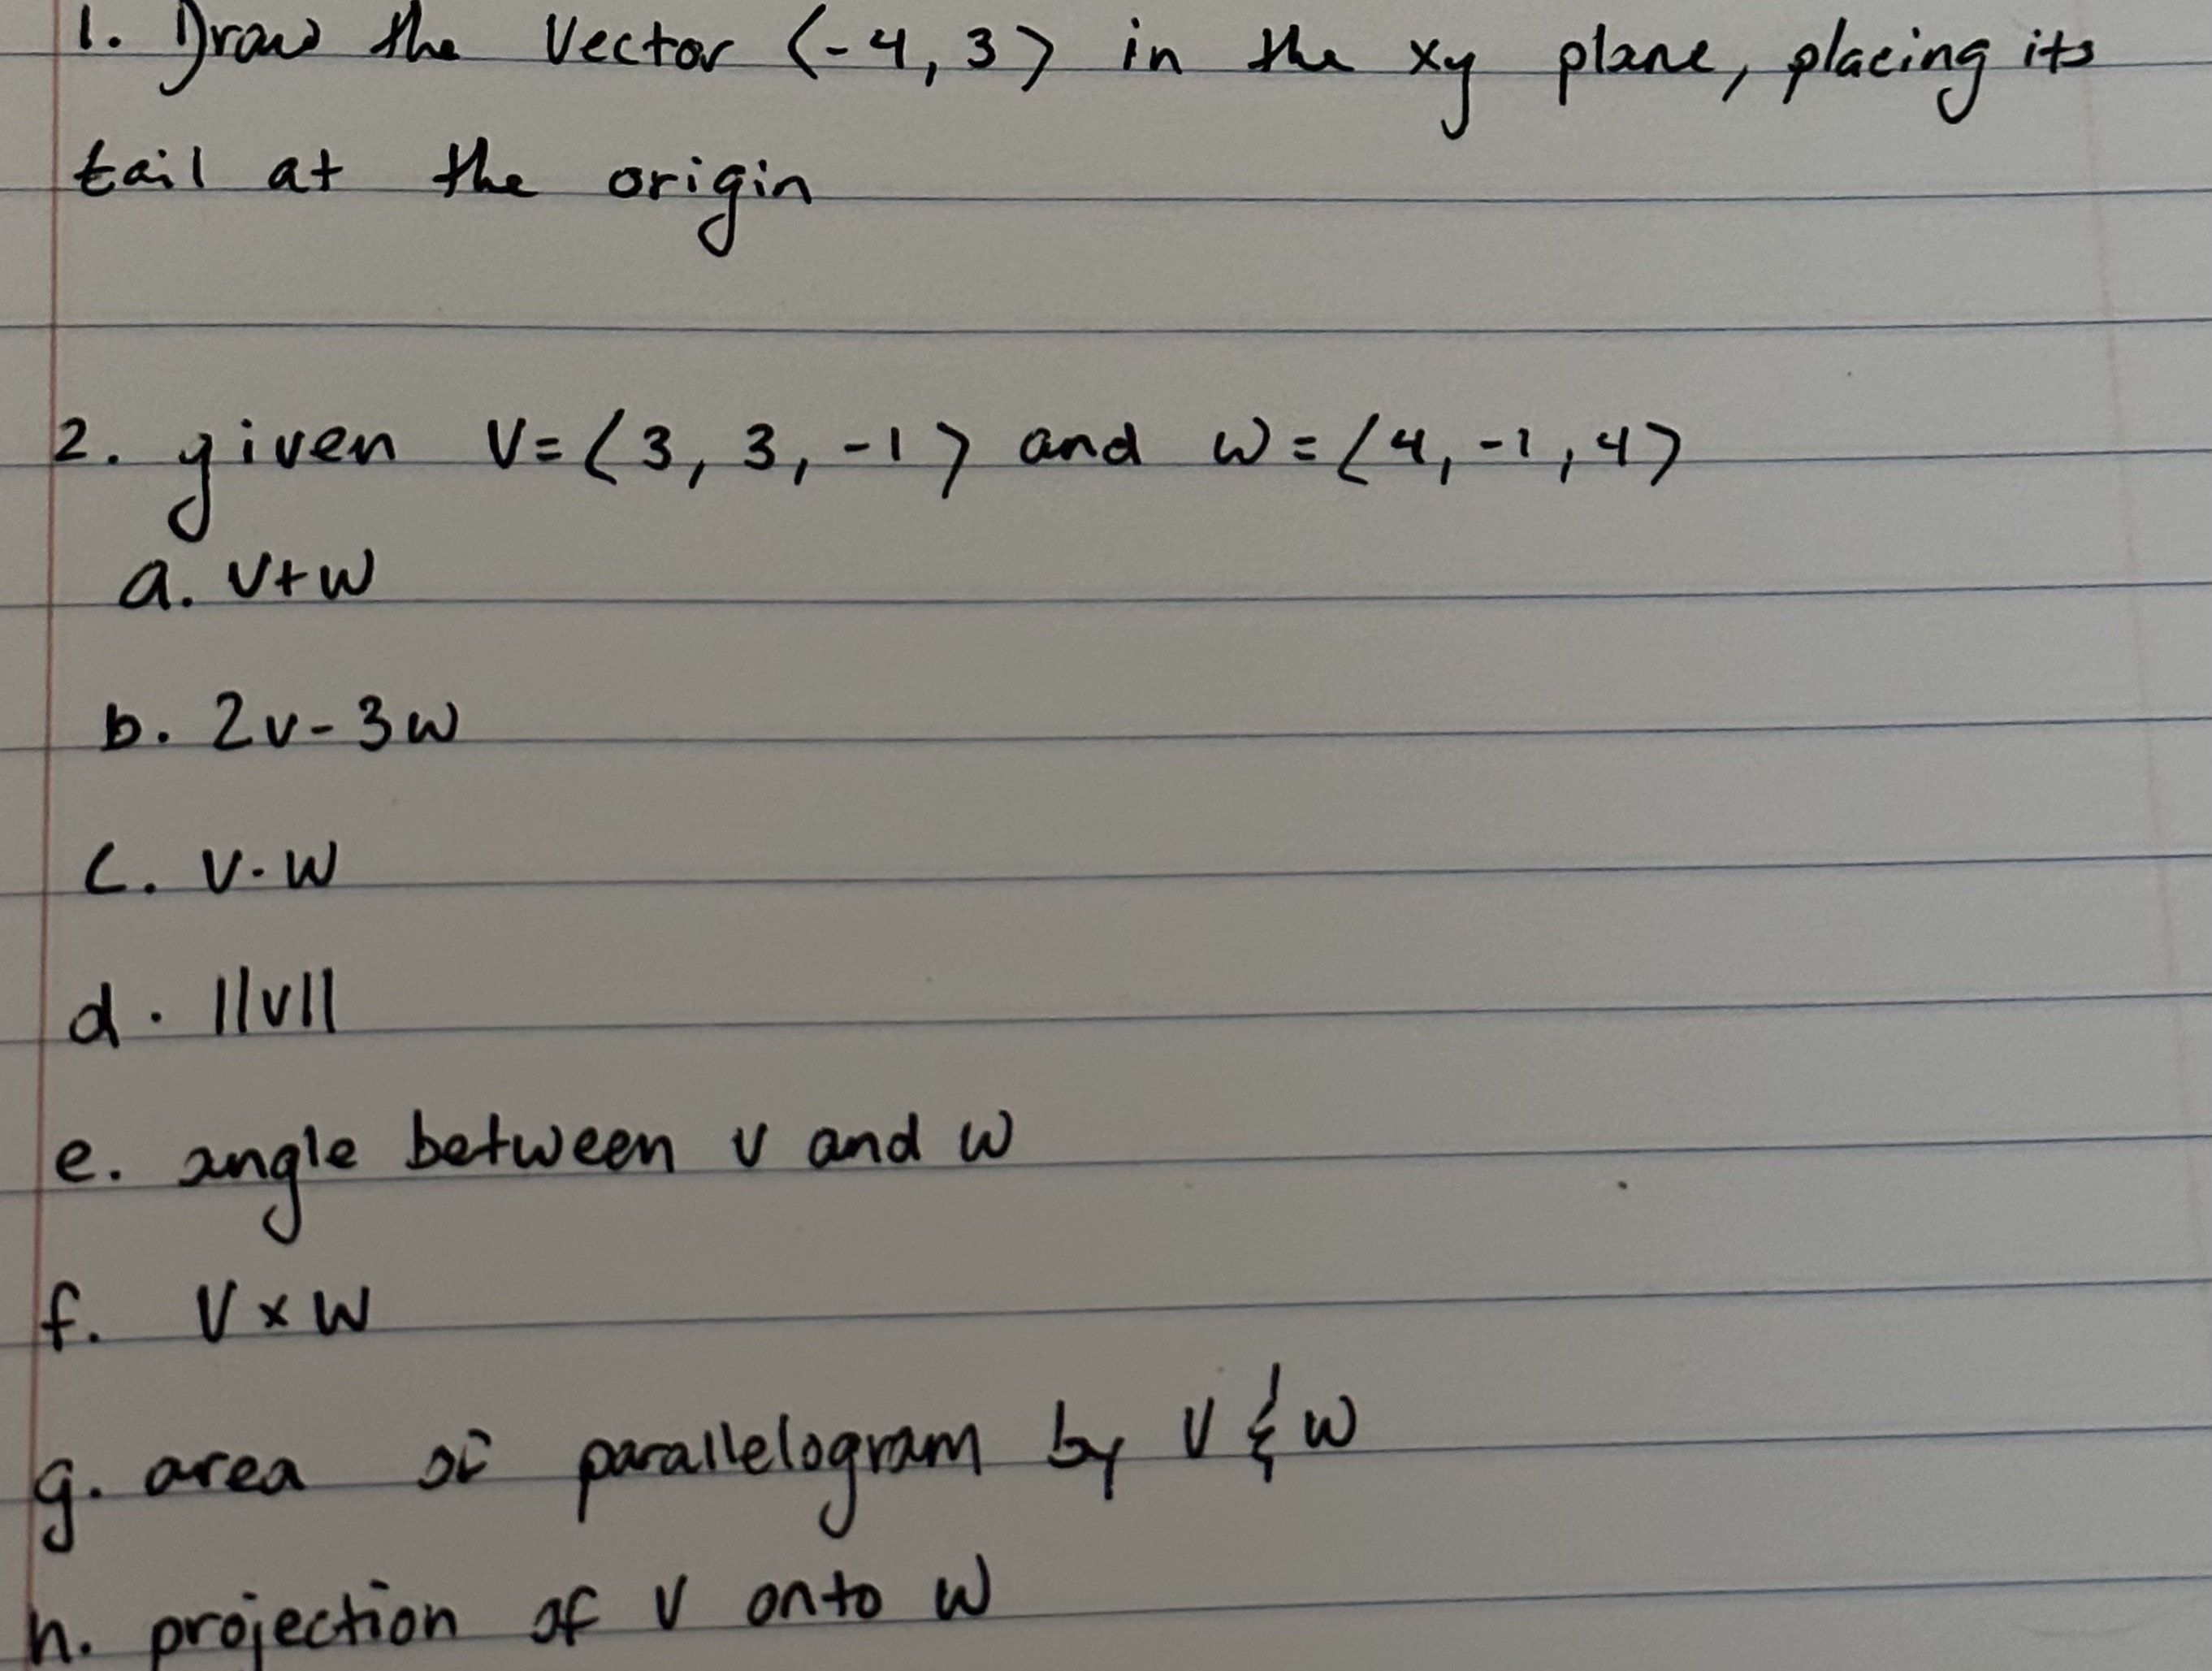 1. Draw the Vector ⟨-4, 3⟩ in the xy plane, placing its
tail at the origin
2. given V=⟨3, 3, -1⟩ and w=⟨4, -1, 4⟩
a. v+w
b. 2v-3w
c. v·w
d. ||v||
e. angle between v and w
f. V×W
g. area of parallelogram by V & w
h. projection of v onto w